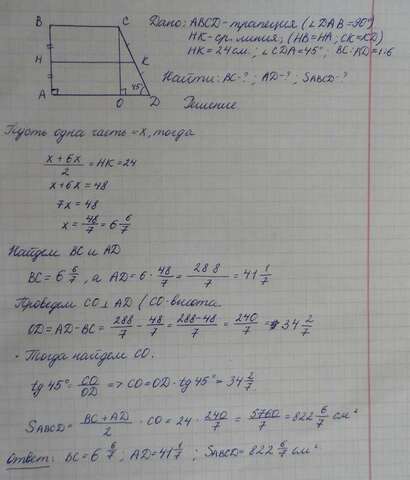 B C Дано: ABCD-трапеция (∠DAB=90°)
HK-ср. линия; (HB=HA; CK=KD)
H K HK=24см, ∠CDA=45°; BC:AD=1:6
A O 45° D Найти: BC-?; AD-?; SABCD-?
Решение
Пусть одна часть = x, тогда
(x+6x)/2 = HK=24
x+6x=48
7x=48
x=48/7=6 6/7
Найдем BC и AD
BC=6 6/7, а AD=6·48/7=288/7=41 1/7
Проведем CO⊥AD (CO-высота
OD=AD-BC=288/7-48/7=(288-48)/7=240/7=34 2/7
Тогда найдем CO.
tg45°=CO/OD => CO=OD·tg45°=34 2/7
SABCD=(BC+AD)/2·CO=24·240/7=5760/7=822 6/7 см²
Ответ: BC=6 6/7; AD=41 1/7; SABCD=822 6/7 см²